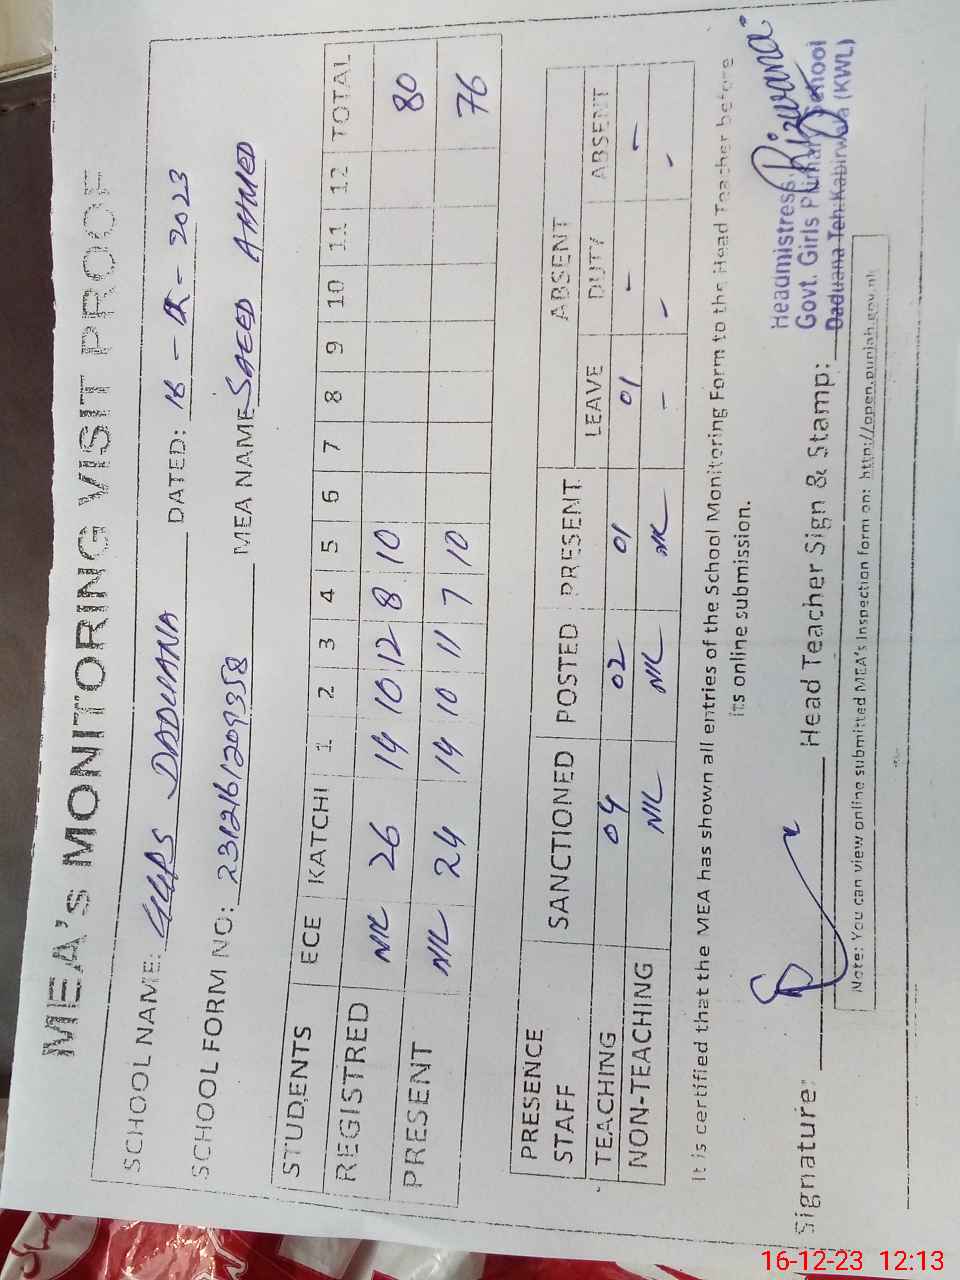 MEA's MONITORING VISIT PROOF
SCHOOL NAME: GGPS DADUANA DATED: 16-12-2023
SCHOOL FORM NO: 2312161209358 MEA NAME SAEED AHMED
STUDENTS ECE KATCHI 1 2 3 4 5 6 7 8 9 10 11 12 TOTAL
REGISTRED NIL 26 14 10 12 8 10 80
PRESENT NIL 24 14 10 11 7 10 76
PRESENCE STAFF SANCTIONED POSTED PRESENT ABSENT
LEAVE DUTY ABSENT
TEACHING 04 02 01 01 - -
NON-TEACHING NIL NIL NIL - - -
It is certified that the MEA has shown all entries of the School Monitoring Form to the Head Teacher before
its online submission.
Rizwana
Headmistress
Govt. Girls Primary School
Daduana Teh: Kabirwala (KWL)
Signature: Head Teacher Sign & Stamp:
Note: You can view online submitted MEA's Inspection form on: http://open.punjab.gov.pk
16-12-23 12:13